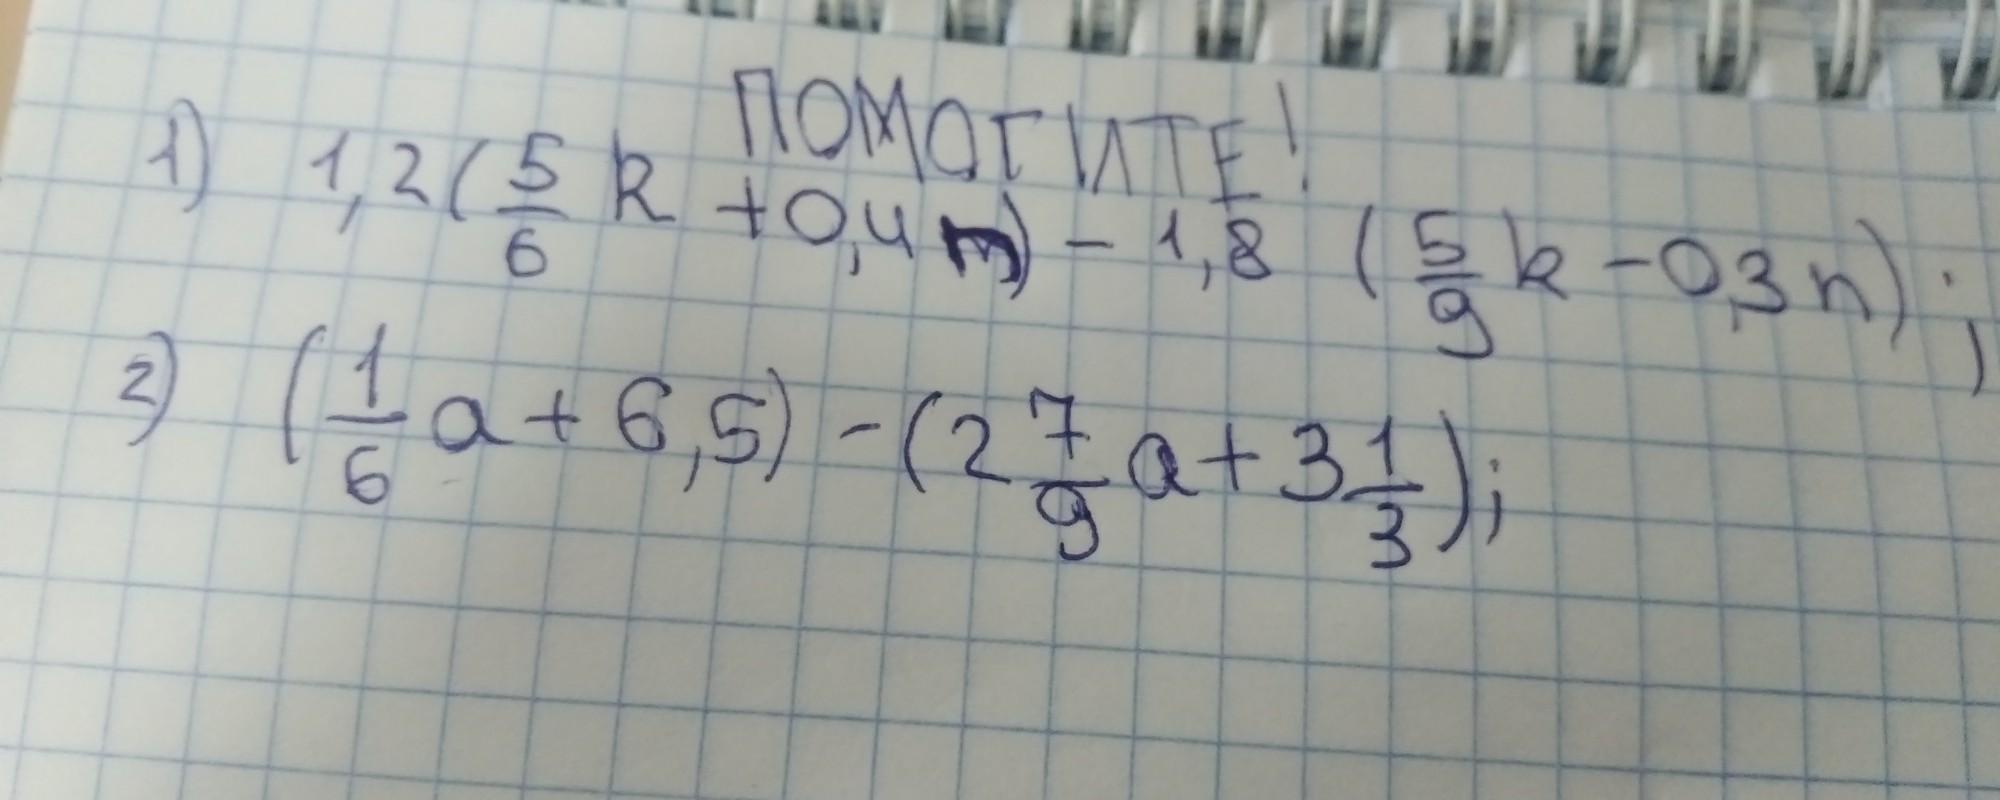 ПОМОГИТЕ!
1) 1,2(5/6 k + 0,4m) - 1,8 (5/9 k - 0,3n);
2) (1/6 a + 6,5) - (2 7/9 a + 3 1/3);